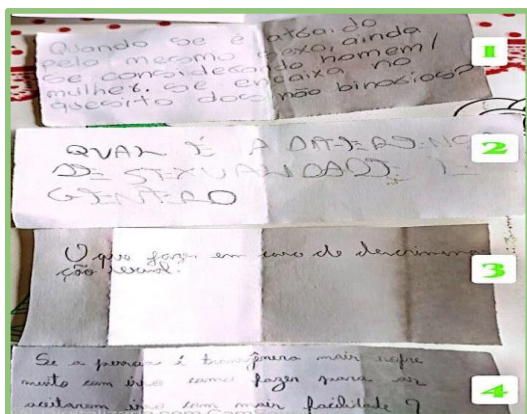 Quando se é atraído
pelo mesmo sexo, ainda
se considerando homem/
mulher, se encaixa no
quesito dos não binários?
1
QUAL É A DIFERENÇA
DE SEXUALIDADE E
GÊNERO
2
O que fazer em caso de descrimina
ção sexual.
3
Se a pessoa é transgênero mais sofre
muito com isso como fazer para as
aceitarem isso com mais facilidade?
4